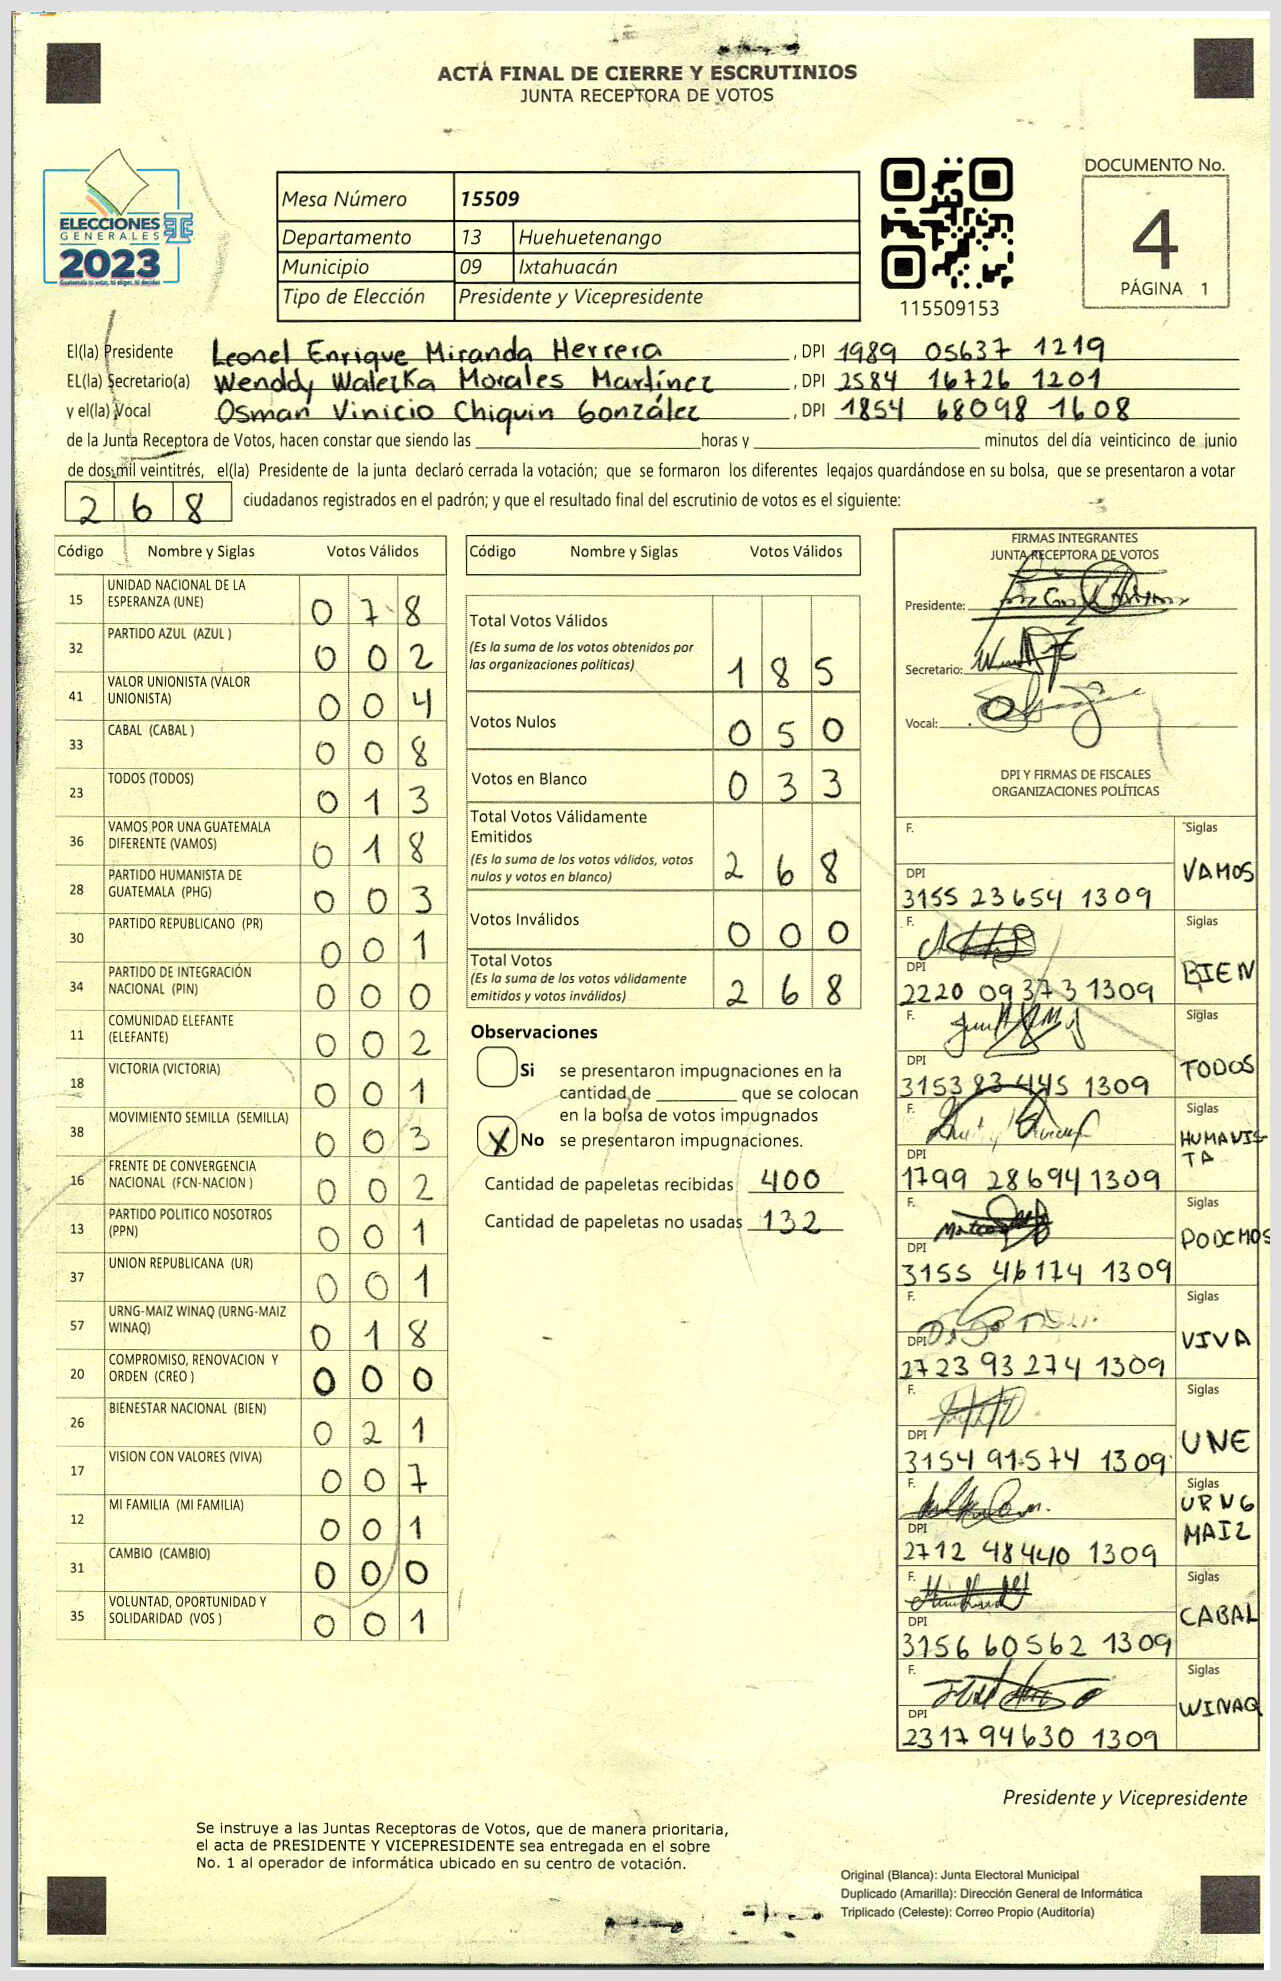 ACTA FINAL DE CIERRE Y ESCRUTINIOS
JUNTA RECEPTORA DE VOTOS
ELECCIONES
GENERALES
2023
Mesa Número 15509
Departamento 13 Huehuetenango
Municipio 09 Ixtahuacán
Tipo de Elección Presidente y Vicepresidente
115509153
DOCUMENTO No.
4
PÁGINA 1
El(la) Presidente Leonel Enrique Miranda Herrera, DPI 1989 05637 1219
EL(la) Secretario(a) Wenddy Walezka Morales Martínez, DPI 2584 16726 1201
y el(la) Vocal Osman Vinicio Chiquin González, DPI 1854 68098 1608
de la Junta Receptora de Votos, hacen constar que siendo las horas y minutos del día veinticinco de junio
de dos mil veintitrés, el(la) Presidente de la junta declaró cerrada la votación; que se formaron los diferentes legajos guardándose en su bolsa, que se presentaron a votar
268 ciudadanos registrados en el padrón; y que el resultado final del escrutinio de votos es el siguiente:
Código Nombre y Siglas Votos Válidos
15 UNIDAD NACIONAL DE LA ESPERANZA (UNE) 078
32 PARTIDO AZUL (AZUL ) 002
41 VALOR UNIONISTA (VALOR UNIONISTA) 004
33 CABAL (CABAL ) 008
23 TODOS (TODOS) 013
36 VAMOS POR UNA GUATEMALA DIFERENTE (VAMOS) 018
28 PARTIDO HUMANISTA DE GUATEMALA (PHG) 003
30 PARTIDO REPUBLICANO (PR) 001
34 PARTIDO DE INTEGRACIÓN NACIONAL (PIN) 000
11 COMUNIDAD ELEFANTE (ELEFANTE) 002
18 VICTORIA (VICTORIA) 001
38 MOVIMIENTO SEMILLA (SEMILLA) 003
16 FRENTE DE CONVERGENCIA NACIONAL (FCN-NACION ) 002
13 PARTIDO POLITICO NOSOTROS (PPN) 001
37 UNION REPUBLICANA (UR) 001
57 URNG-MAIZ WINAQ (URNG-MAIZ WINAQ) 018
20 COMPROMISO, RENOVACION Y ORDEN (CREO ) 000
26 BIENESTAR NACIONAL (BIEN) 021
17 VISION CON VALORES (VIVA) 007
12 MI FAMILIA (MI FAMILIA) 001
31 CAMBIO (CAMBIO) 000
35 VOLUNTAD, OPORTUNIDAD Y SOLIDARIDAD (VOS ) 001
Código Nombre y Siglas Votos Válidos
Total Votos Válidos 185
(Es la suma de los votos obtenidos por
las organizaciones políticas)
Votos Nulos 050
Votos en Blanco 033
Total Votos Válidamente
Emitidos 268
(Es la suma de los votos válidos, votos
nulos y votos en blanco)
Votos Inválidos 000
Total Votos 268
(Es la suma de los votos válidamente
emitidos y votos inválidos)
Observaciones
Si se presentaron impugnaciones en la
cantidad de que se colocan
en la bolsa de votos impugnados
X No se presentaron impugnaciones.
Cantidad de papeletas recibidas 400
Cantidad de papeletas no usadas 132
FIRMAS INTEGRANTES
JUNTA RECEPTORA DE VOTOS
Presidente:
Secretario:
Vocal:
DPI Y FIRMAS DE FISCALES
ORGANIZACIONES POLÍTICAS
F. Siglas
VAMOS
DPI
3155 23654 1309
F. Siglas
BIEN
DPI
2220 09373 1309
F. Siglas
TODOS
DPI
3153 83445 1309
F. Siglas
HUMANIS
TA
DPI
1799 28694 1309
F. Siglas
PODEMOS
DPI
3155 46174 1309
F. Siglas
VIVA
DPI
2723 93274 1309
F. Siglas
UNE
DPI
3154 91574 1309
F. Siglas
URNG
MAIZ
DPI
2712 48440 1309
F. Siglas
CABAL
DPI
3156 60562 1309
F. Siglas
WINAQ
DPI
2317 94630 1309
Presidente y Vicepresidente
Se instruye a las Juntas Receptoras de Votos, que de manera prioritaria,
el acta de PRESIDENTE Y VICEPRESIDENTE sea entregada en el sobre
No. 1 al operador de informática ubicado en su centro de votación.
Original (Blanca): Junta Electoral Municipal
Duplicado (Amarilla): Dirección General de Informática
Triplicado (Celeste): Correo Propio (Auditoría)